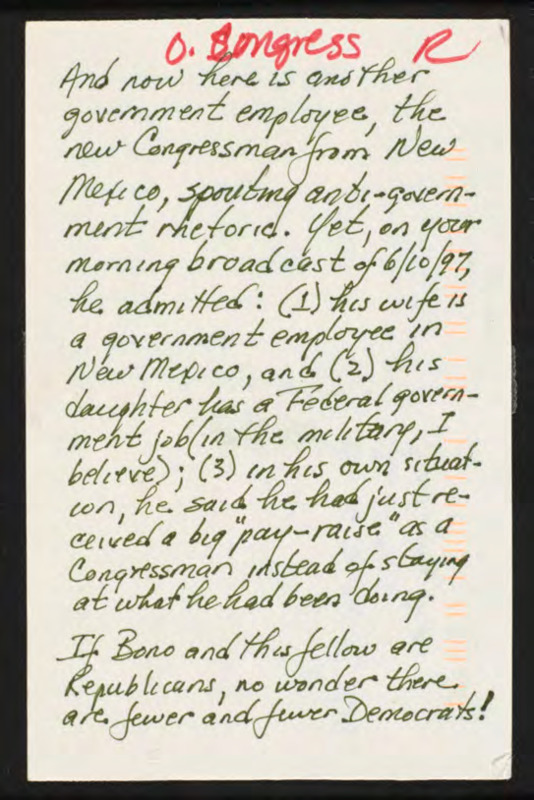 O. Congress R
And now here is another
government employee, the
new Congressman from New
Mexico, spouting anti-govern-
ment rhetoric. Yet, on your
morning broadcast of 6/10/97,
he admitted: (1) his wife is
a government employee in
New Mexico, and (2) his
daughter has a Federal govern-
ment job (in the military, I
believe); (3) in his own situat-
ion, he said he had just re-
ceived a big "pay-raise" as a
Congressman instead of staying
at what he had been doing.
If Bono and this fellow are
Republicans, no wonder there
are fewer and fewer Democrats!